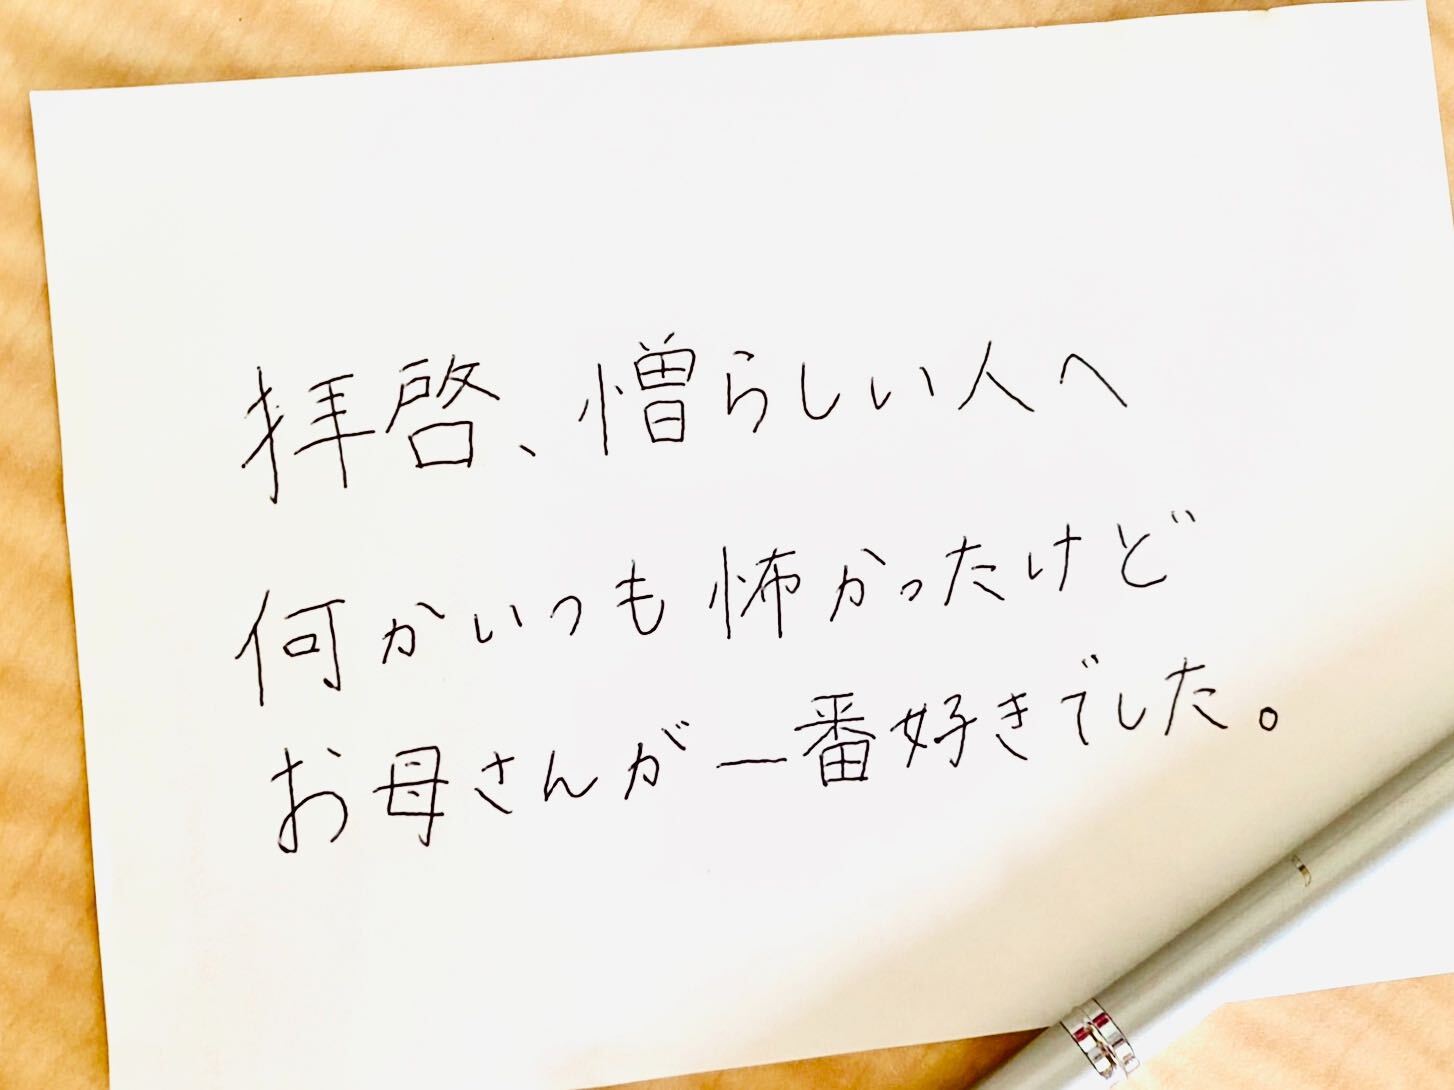 拝啓、憎らしい人へ
何かいつも怖かったけど
お母さんが一番好きでした。